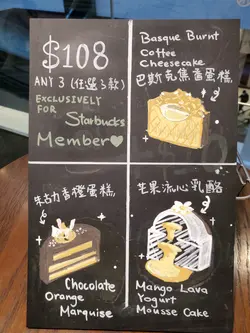 $108
ANY 3 (任選3款)
EXCLUSIVELY
FOR Starbucks
Member
Basque Burnt
Coffee
Cheesecake
巴斯克焦香蛋糕
朱古力香橙蛋糕
Chocolate
Orange
Marquise
芒果流心乳酪
Mango Lava
Yogurt
Mousse Cake